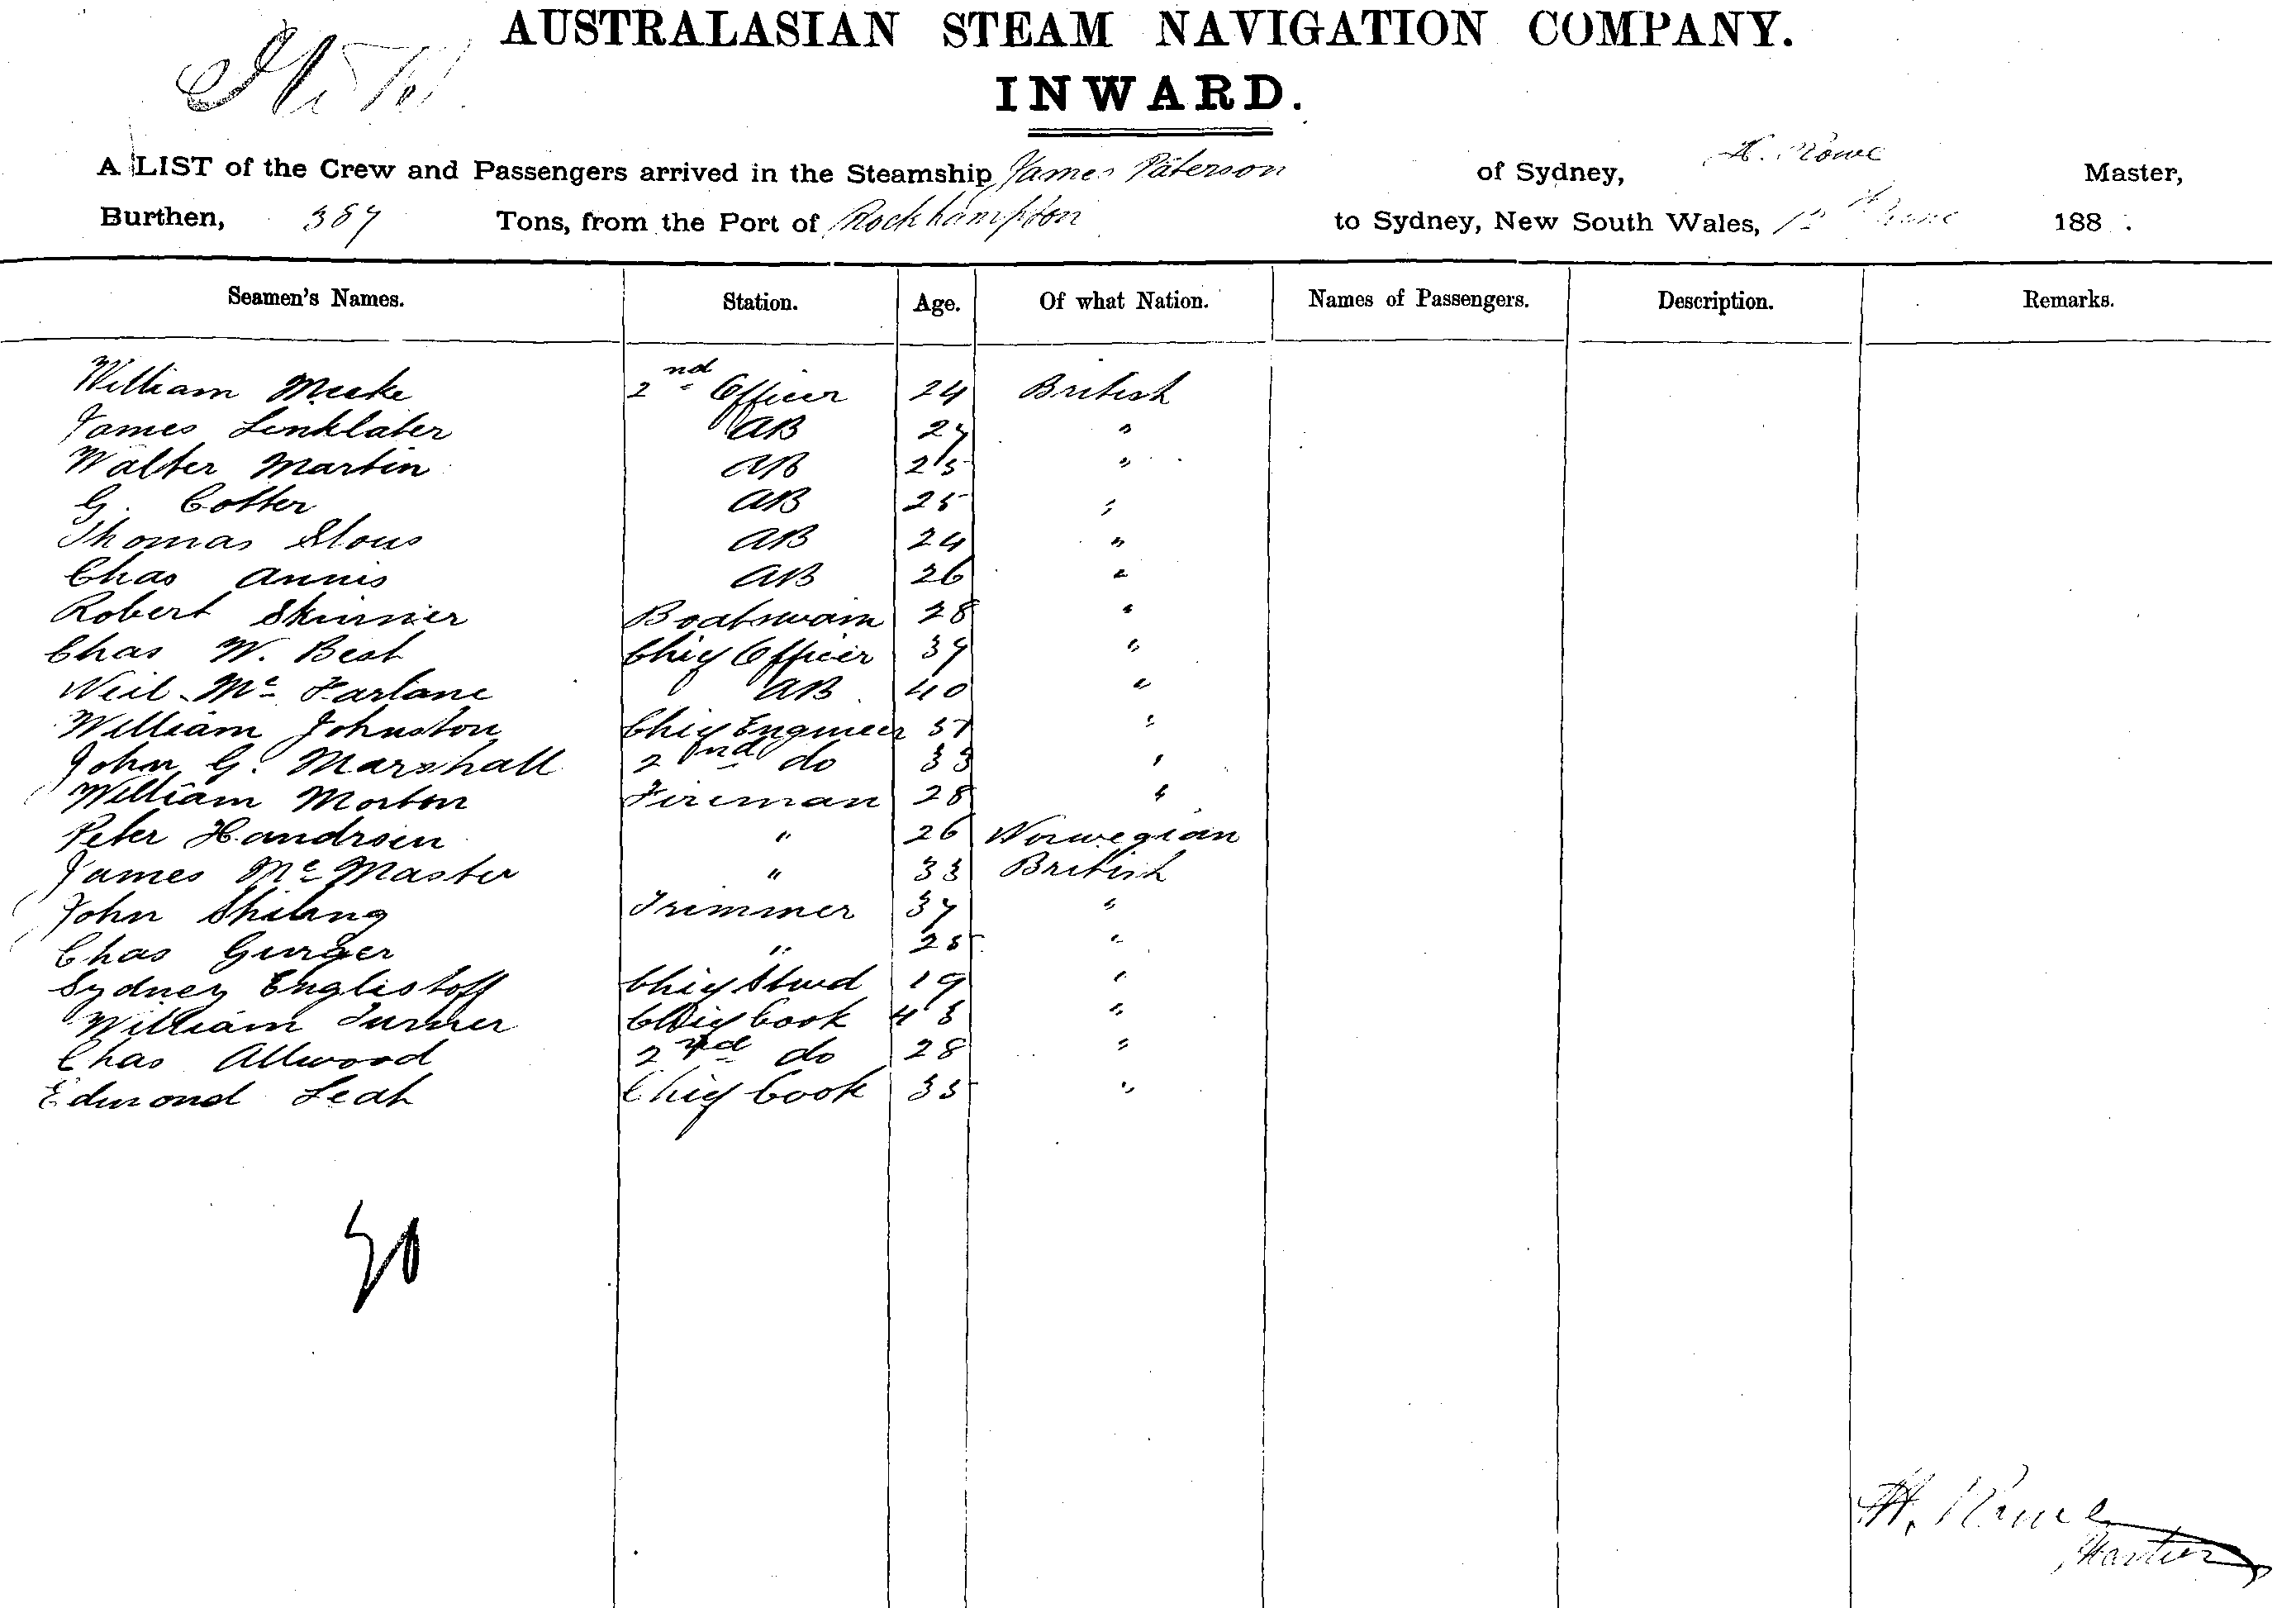 AUSTRALASIAN STEAM NAVIGATION COMPANY.
INWARD.
A LIST of the Crew and Passengers arrived in the Steamship James Paterson of Sydney, H. Rowe Master,
Burthen, 387 Tons, from the Port of Rockhampton to Sydney, New South Wales, June 188 .
Seamen's Names. Station. Age. Of what Nation. Names of Passengers. Description. Remarks.
William Meeke 2nd Officer 24 British
James Linklater AB 27 "
Walter Martin AB 25 "
G. Cotter AB 25 "
Thomas Slous AB 24 "
Chas Annis AB 26 "
Robert Skinner Boatswain 28 "
Chas W. Best Chief Officer 39 "
Neil Mc Farlane AB 40 "
William Johnston Chief Engineer 37 "
John G. Marshall 2nd do 33 "
William Morton Fireman 28 "
Peter Handrsen " 26 Norwegian
James Mc Master " 33 British
John Shilling Trimmer 37 "
Chas Gurger " 25 "
Sydney Englistoff Chief Stwd 19 "
William Turner Chief Cook 43 "
Chas Allwood 2nd do 28 "
Edmond Leah Chief Cook 35 "
20
H. Rowe
Master